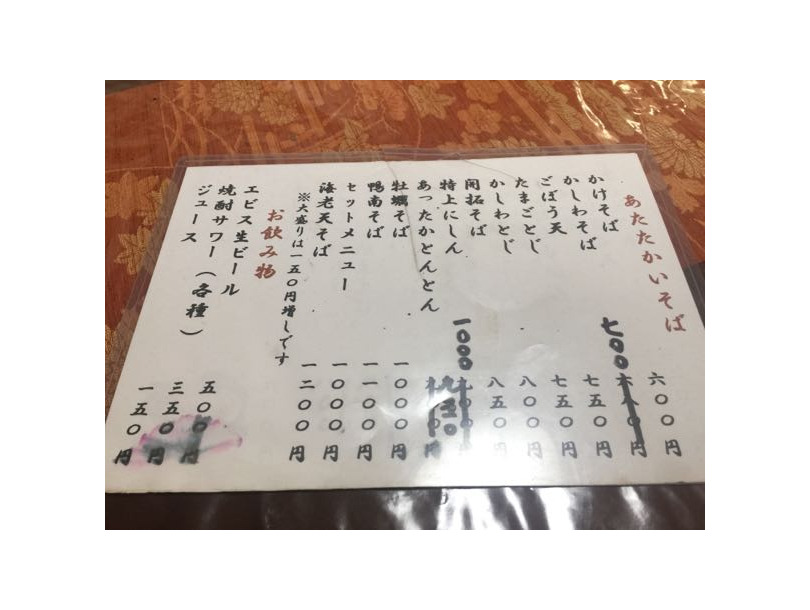 あたたかいそば
かけそば 六〇〇円
かしわそば 七〇〇円
ごぼう天 七五〇円
たまごとじ 七五〇円
かしわとじ 八〇〇円
開拓そば 八五〇円
特上にしん 一〇〇〇円
あったかとんとん 九五〇円
牡蠣そば 一〇〇〇円
鴨南そば 一一〇〇円
セットメニュー 一〇〇〇円
海老天そば 一二〇〇円
※大盛りは一五〇円増しです
お飲み物
エビス生ビール 五〇〇円
焼酎サワー 三五〇円
ジュース（各種） 一五〇円